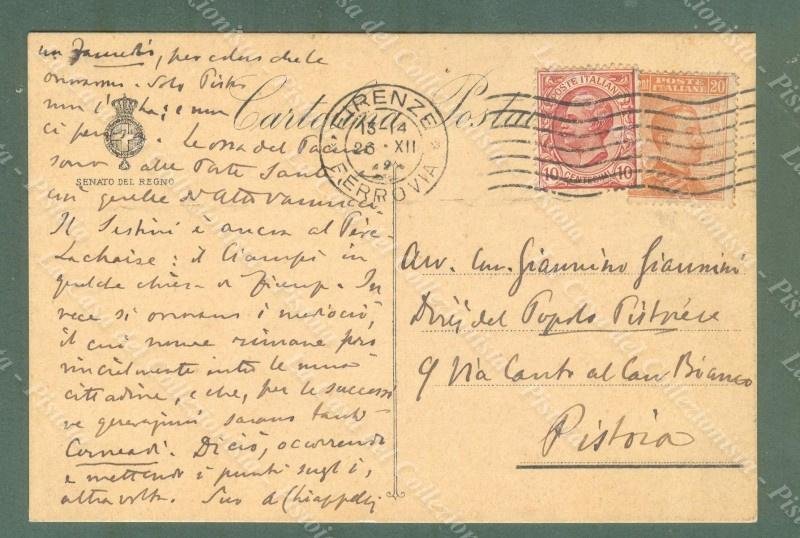 per coloro che le
onorarono. Solo Pistoia
non l'ha; e non
ci pensa. Le ossa del Pacini
sono alle Porte Sante
un quelle d'Atto Vannucci.
Il Sestini è ancora al Père
Lachaise: il Ciampi in
qualche chiesa di Firenze. In
vece si onorano i mediocri,
il cui nome rimane pro
vincialmente entro le mura
cittadine, e che, per le successi
ve generazioni saranno tanti
Carneadi. Di ciò, occorrendo
e mettendo i punti sugl'i,
altra volta. Suo A Chiappelli
SENATO DEL REGNO
Cartolina Postale
FIRENZE
13-14
26 XII
FERROVIA
POSTE ITALIANE
10 CENTESIMI 10
POSTE 20
ITALIANE
Avv. Cav. Giannino Giannini
Dirij del Popolo Pistoiese
9 Via Canto al Can Bianco
Pistoia